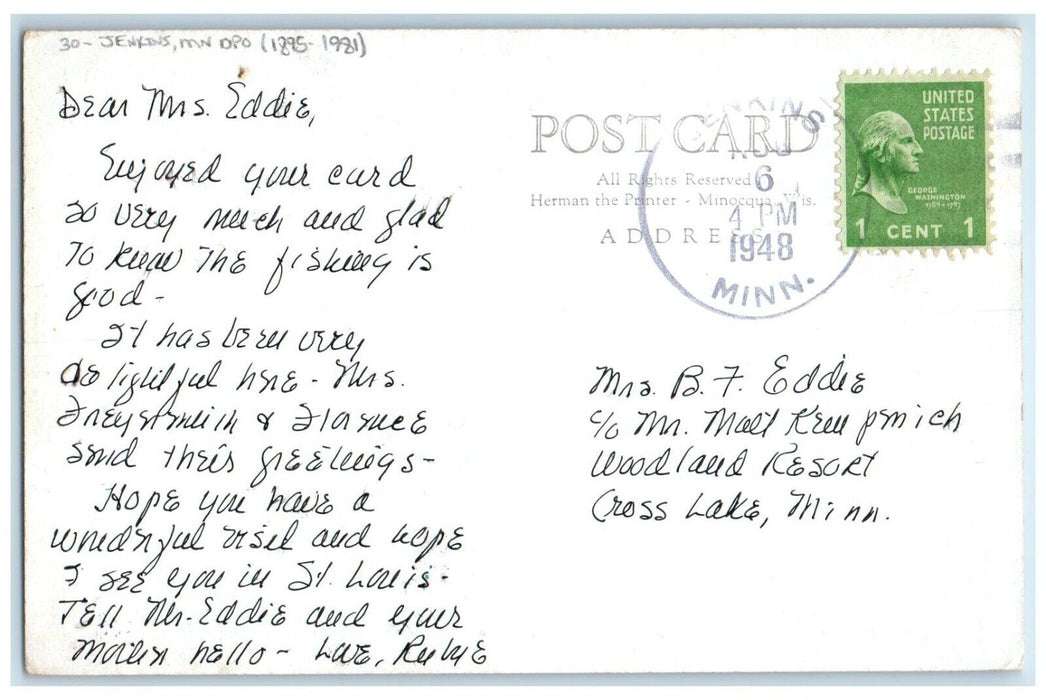 30- JENKINS, MN DPO (1895-1981)
Dear Mrs. Eddie,
Enjoyed your card
so very much and glad
to know the fishing is
good-
It has been very
delightful here - Mrs.
& Florence
send their greetings-
Hope you have a
wonderful visit and hope
I see you in St. Louis-
Tell Mr. Eddie and your
mother hello- Love, Rubye
POST CARD
All Rights Reserved
Herman the Printer - Minocqua, Wis.
ADDRESS
JENKINS
AUG
6
4 PM
1948
MINN.
UNITED
STATES
POSTAGE
GEORGE
WASHINGTON
1789-1797
1 CENT 1
Mrs. B. F. Eddie
c/o Mr. Matt
Woodland Resort
Cross Lake, Minn.